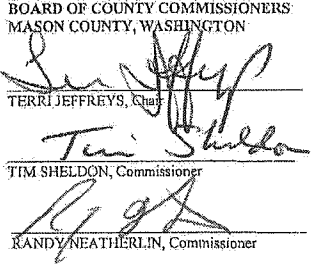 BOARD OF COUNTY COMMISSIONERS
MASON COUNTY, WASHINGTON
TERRI JEFFREYS, Chair
Tim Sheldon
TIM SHELDON, Commissioner
RANDY NEATHERLIN, Commissioner